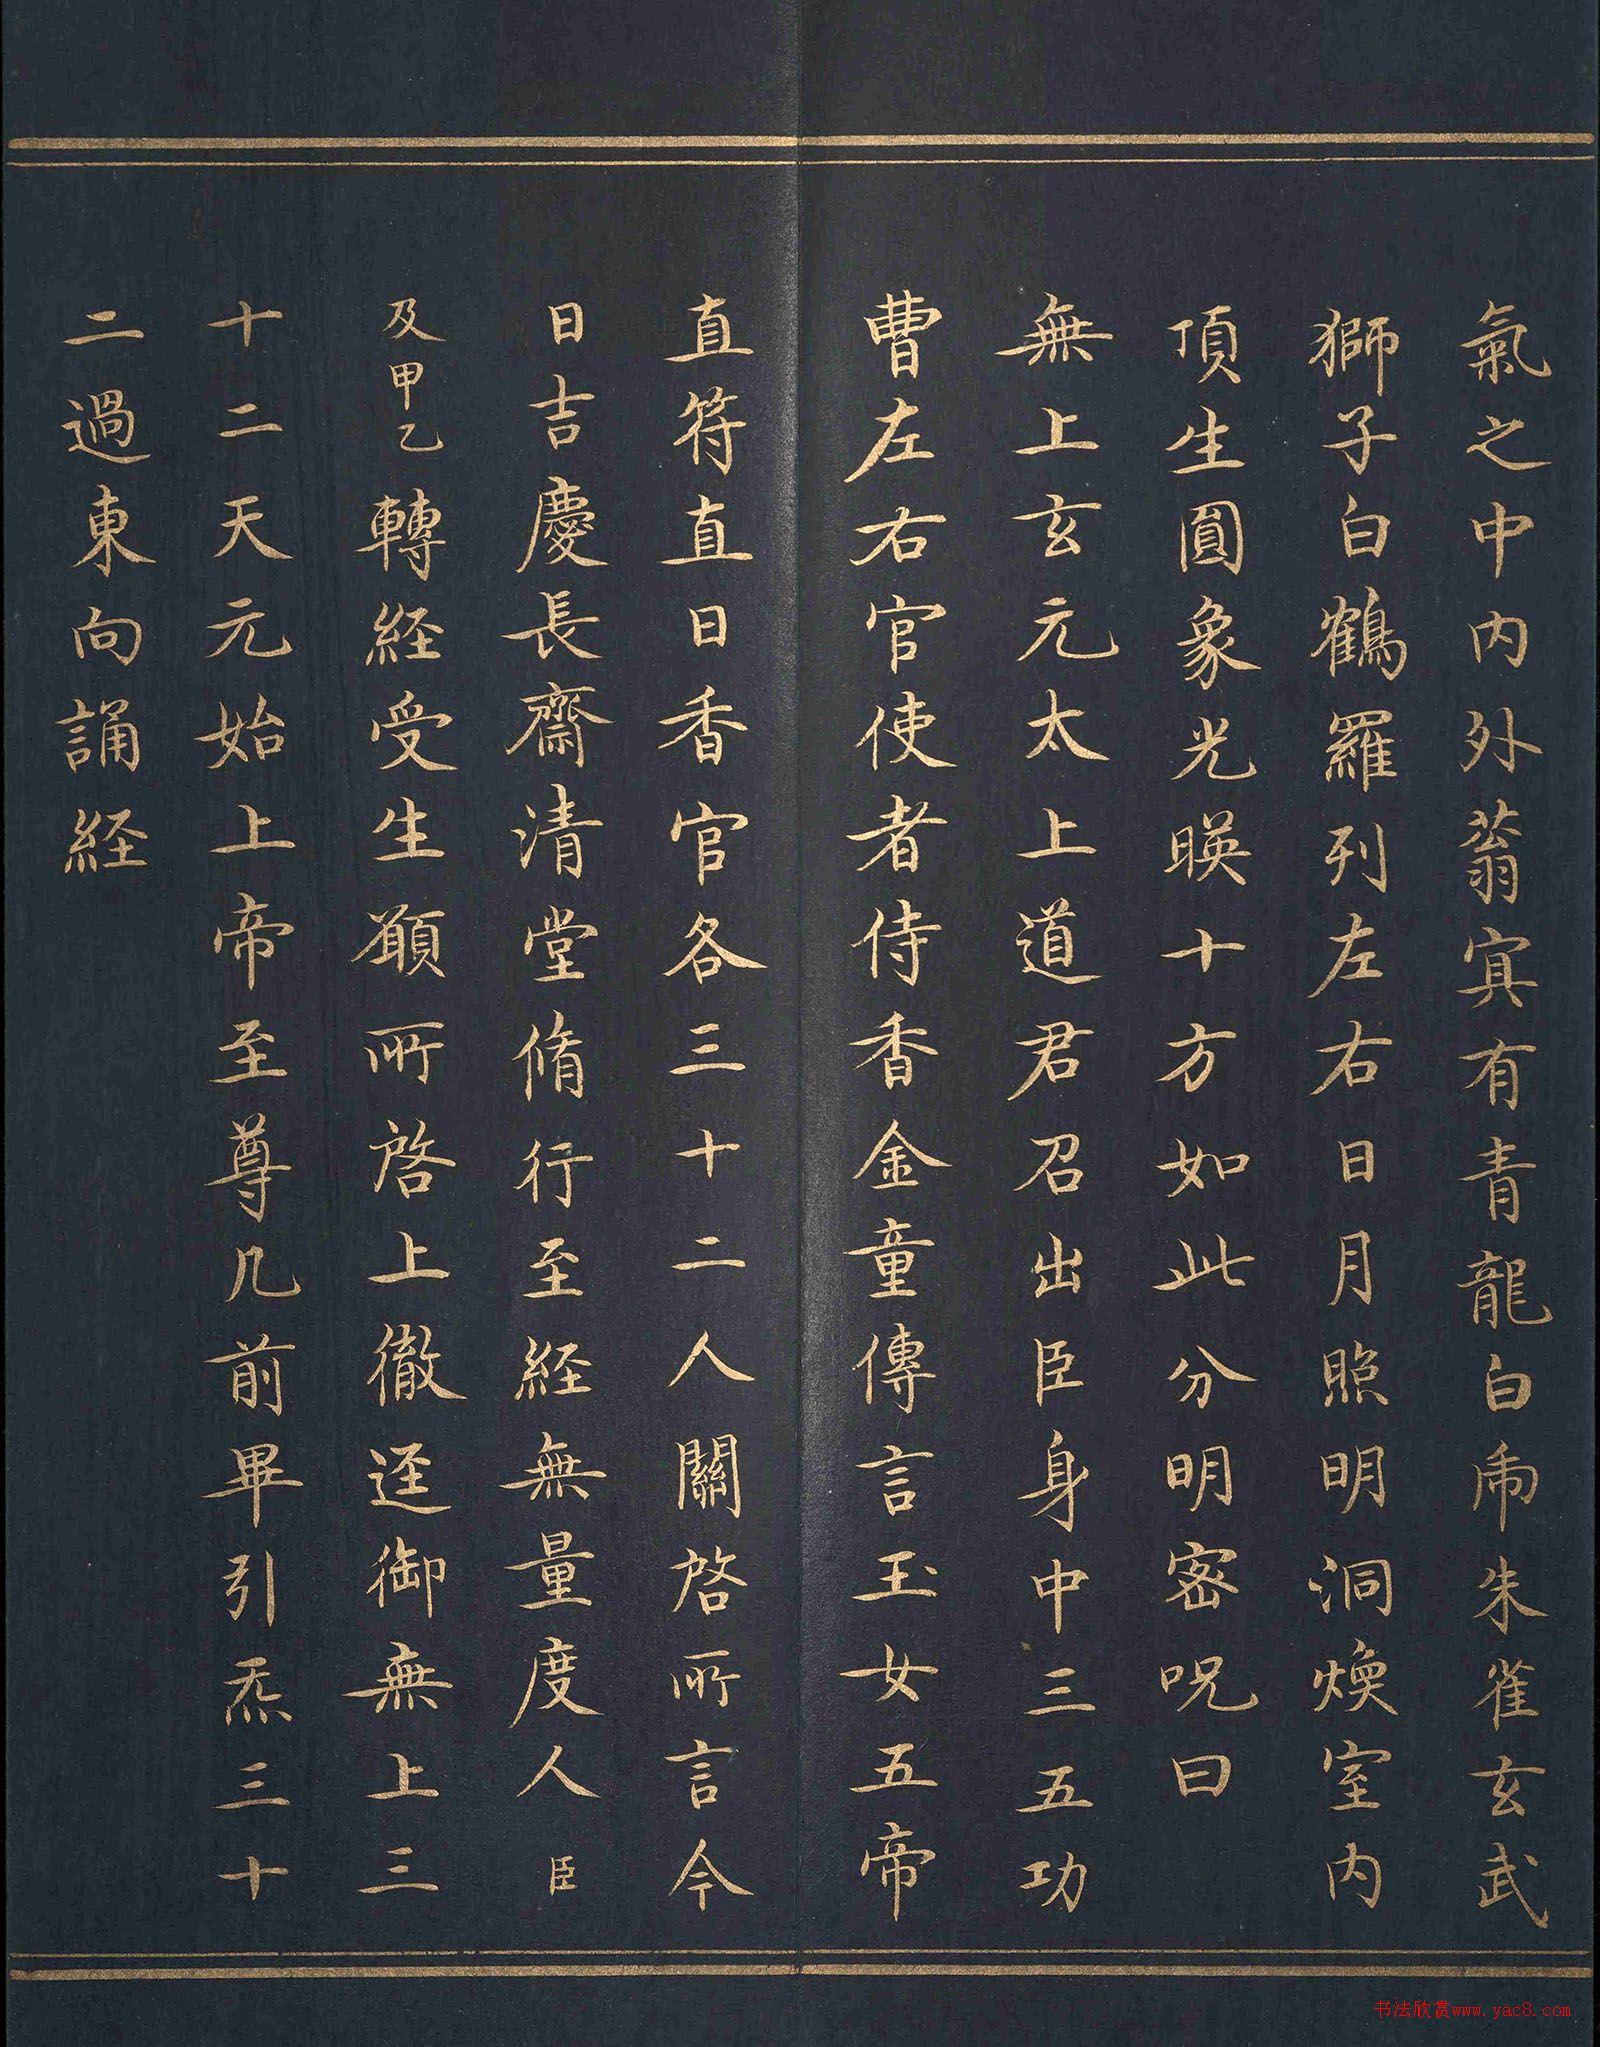 氣之中內外蓊寘有青龍白帍朱雀玄武
獅子白鶴羅列左右日月照明洞煥室內
頂生圓象光暎十方如此分明密呪曰
無上玄元太上道君召出臣身中三五功
曹左右官使者侍香金童傳言玉女五帝
直符直日香官各三十二人關啓所言今
日吉慶長齋清堂脩行至經無量度人臣
及甲乙轉經受生願所啓上徹逕御無上三
十二天元始上帝至尊几前畢引炁三十
二過東向誦經
书法欣赏www.yac8.com